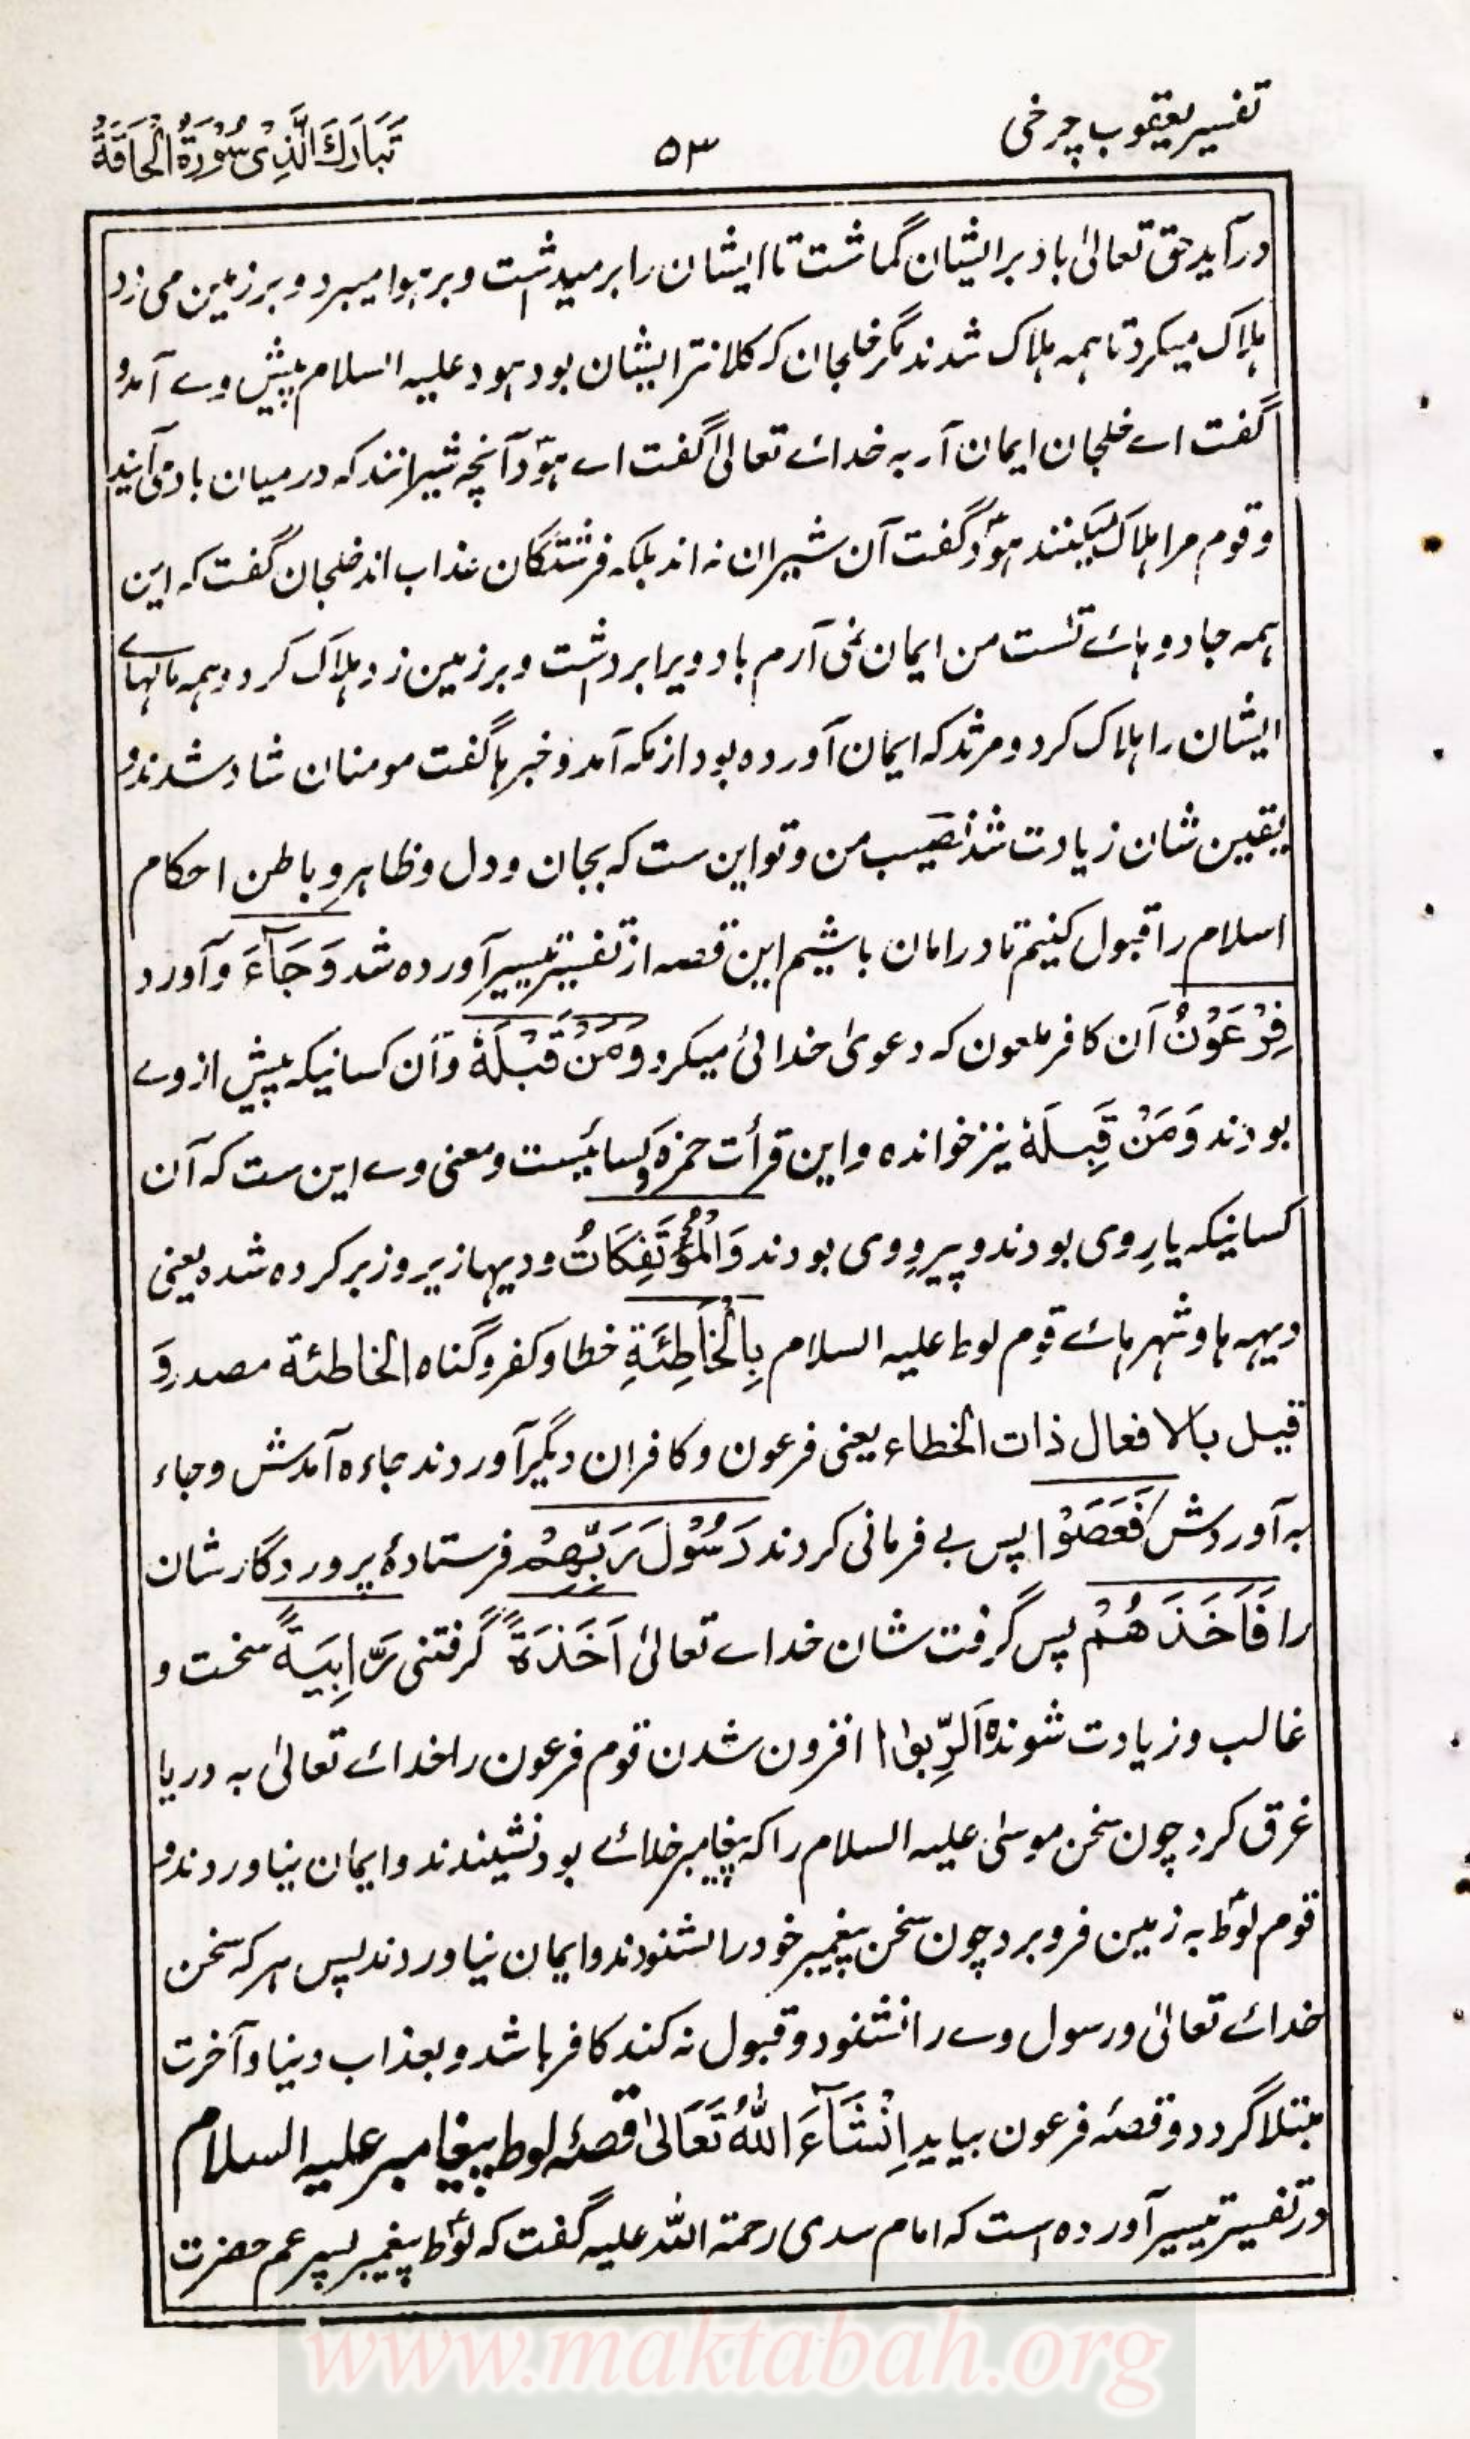 تفسیر یعقوب چرخی
۵۳
تَبَارَكَ الَّذِیْ سُوْرَةُ الْحَاقَّةُ
درآید حق تعالیٰ باد بر ایشان گماشت تا ایشان را برمیداشت و بر ہوا میبرد و بر زمین می زد
ہلاک میکرد تا ہمہ ہلاک شدند مگر خلجان کہ کلانتر ایشان بود ہود علیہ السلام پیش وے آمد و
گفت اے خلجان ایمان آر بہ خدائے تعالیٰ گفت اے ہودؑ آنچہ شیرانند کہ درمیان باد می آیند
و قوم مرا ہلاک میکنند ہودؑ گفت آن شیران نہ اند بلکہ فرشتگان عذاب اند خلجان گفت کہ این
ہمہ جادو ہائے تست من ایمان نمی آرم باد ویرا برداشت و بر زمین زد ہلاک کرد و ہمہ مالہاے
ایشان را ہلاک کرد و مرثد کہ ایمان آوردہ بود از مکہ آمد و خبرہا گفت مومنان شاد شدند و
یقین شان زیادت شد نصیب من و تو این ست کہ بجان و دل و ظاہر و باطن احکام
اسلام را قبول کنیم تا در امان باشیم این قصہ از تفسیر تیسیر آوردہ شد وَجَآءَ و آورد
فِرْعَوْنُ آن کافر ملعون کہ دعویٰ خدائی میکرد وَمَنْ قَبْلَهٗ و آن کسانیکہ پیش از وے
بودند وَمَنْ قِبَلَهٗ نیز خواندہ و این قرأت حمزہ و کسائیست و معنی وے این ست کہ آن
کسانیکہ یارِ وی بودند و پیروِ وی بودند وَالْمُؤْتَفِكَاتُ و دیہا زیر و زبر کردہ شدہ یعنی
دیہہ ہا و شہر ہائے قوم لوط علیہ السلام بِالْخَاطِئَةِ خطا و کفر و گناہ الخاطئة مصدر وَ
قیل بالافعال ذات الخطاء یعنی فرعون و کافران دیگر آوردند جاءہ آمدش و جاء
بہ آوردش فَعَصَوْا پس بے فرمانی کردند رَسُوْلَ رَبِّهِمْ فرستادۂ پروردگار شان
را فَاَخَذَهُمْ پس گرفت شان خداے تعالیٰ اَخْذَةً گرفتنی رَّابِيَةً سخت و
غالب و زیادت شوندہ اَلرِّبوٰا افزون شدن قوم فرعون را خدائے تعالیٰ بہ دریا
غرق کرد چون سخن موسیٰ علیہ السلام را کہ پیغامبر خدائے بود نشنیدند و ایمان نیاوردند و
قوم لوطؑ بہ زمین فرو برد چون سخن پیغمبر خود را نشنودند و ایمان نیاوردند پس ہر کہ سخن
خدائے تعالیٰ و رسول وے را نشنود و قبول نہ کند کافر باشد و بعذاب دنیا و آخرت
مبتلا گردد و قصۂ فرعون بیاید اِنْشَآءَ اللّٰهُ تَعَالیٰ قصۂ لوط پیغامبر علیہ السلام
در تفسیر تیسیر آوردہ است کہ امام سدی رحمۃ اللّٰہ علیہ گفت کہ لوطؑ پیغمبر پسر عم حضرت
www.maktabah.org